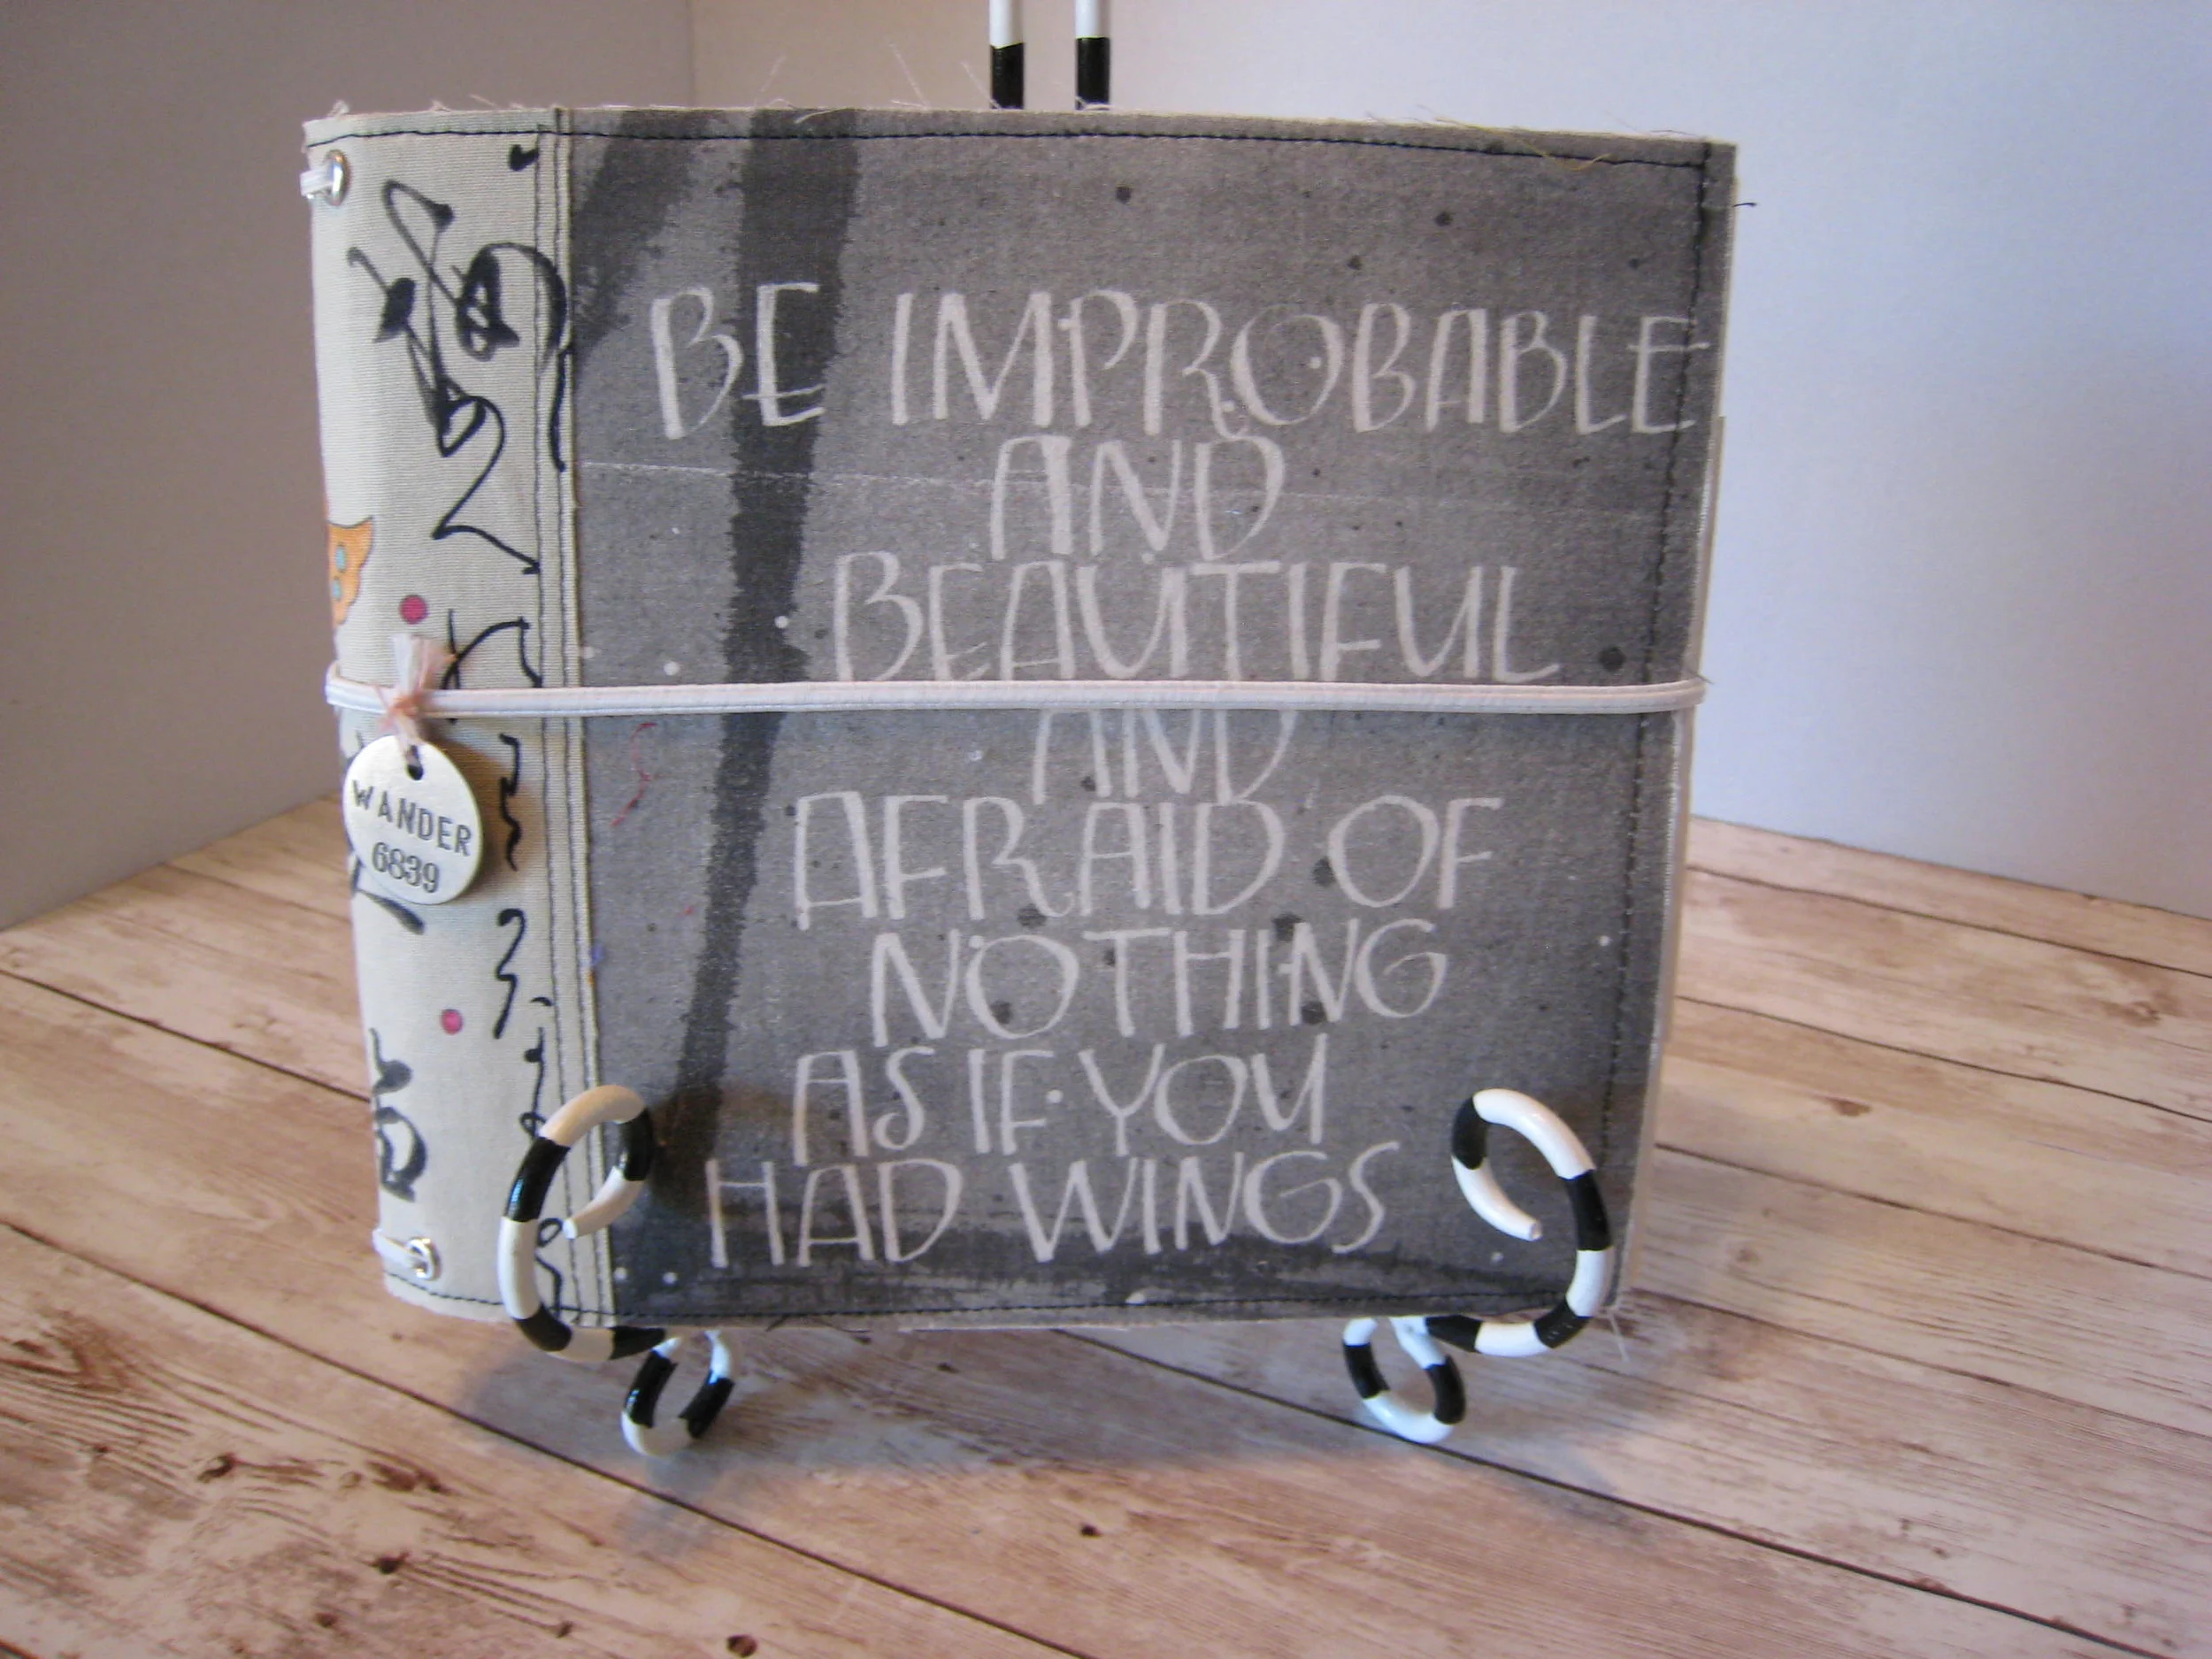 BE IMPROBABLE
AND
BEAUTIFUL
AND
AFRAID OF
NOTHING
AS IF YOU
HAD WINGS
WANDER
6839